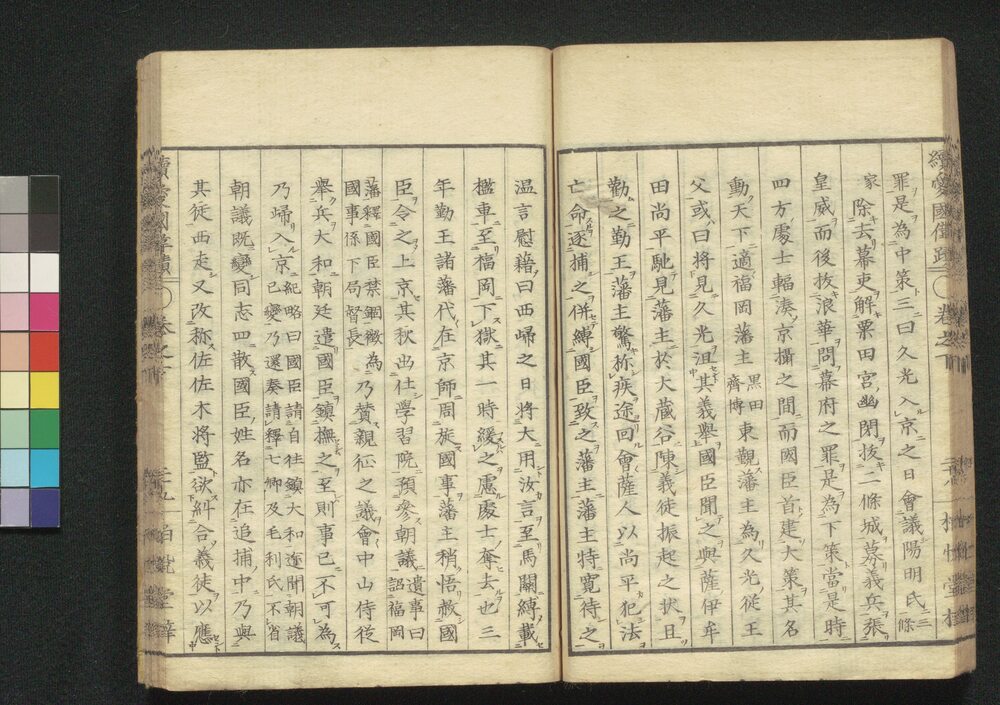 續愛國偉蹟 〇 卷之下
罪是為中策三曰久光入京之日會議陽明氏三條
家除去幕吏解粟田宮幽閉拔二條城募義兵張
皇威而後拔浪華問幕府之罪是為下策當是時
四方處士輻湊京攝之間而國臣首建大策其名
動天下適福岡藩主黑田齊溥東覲藩主為久光從王
父或曰將見久光沮其義舉國臣聞之與薩伊牟
田尚平馳見藩主於大藏谷陳義徒振起之狀且
勸之勤王藩主驚称疾途回會薩人以尚平犯法
亡命逐捕之併縛國臣致之藩主藩主特寬待之
温言慰藉曰西歸之日將大用汝言至馬關縛載
檻車至福岡下獄其一時緩之慮處士奪去也三
年勤王諸藩代在京師周旋國事藩主稍悟赦國
臣令之上京其秋出仕學習院預參朝議遺事曰詔福岡
藩釋國臣禁錮徵為國事係下局督長乃贊親征之議會中山侍從
舉兵大和朝廷遣國臣鎮撫之至則事已不可為
乃歸入京紀略曰國臣請自往鎮大和迩聞朝議已變乃還奏請釋七卿及毛利氏不省
朝議既變同志四散國臣姓名亦在追捕中乃與
其徒西走又改称佐佐木將監欲糾合義徒以應